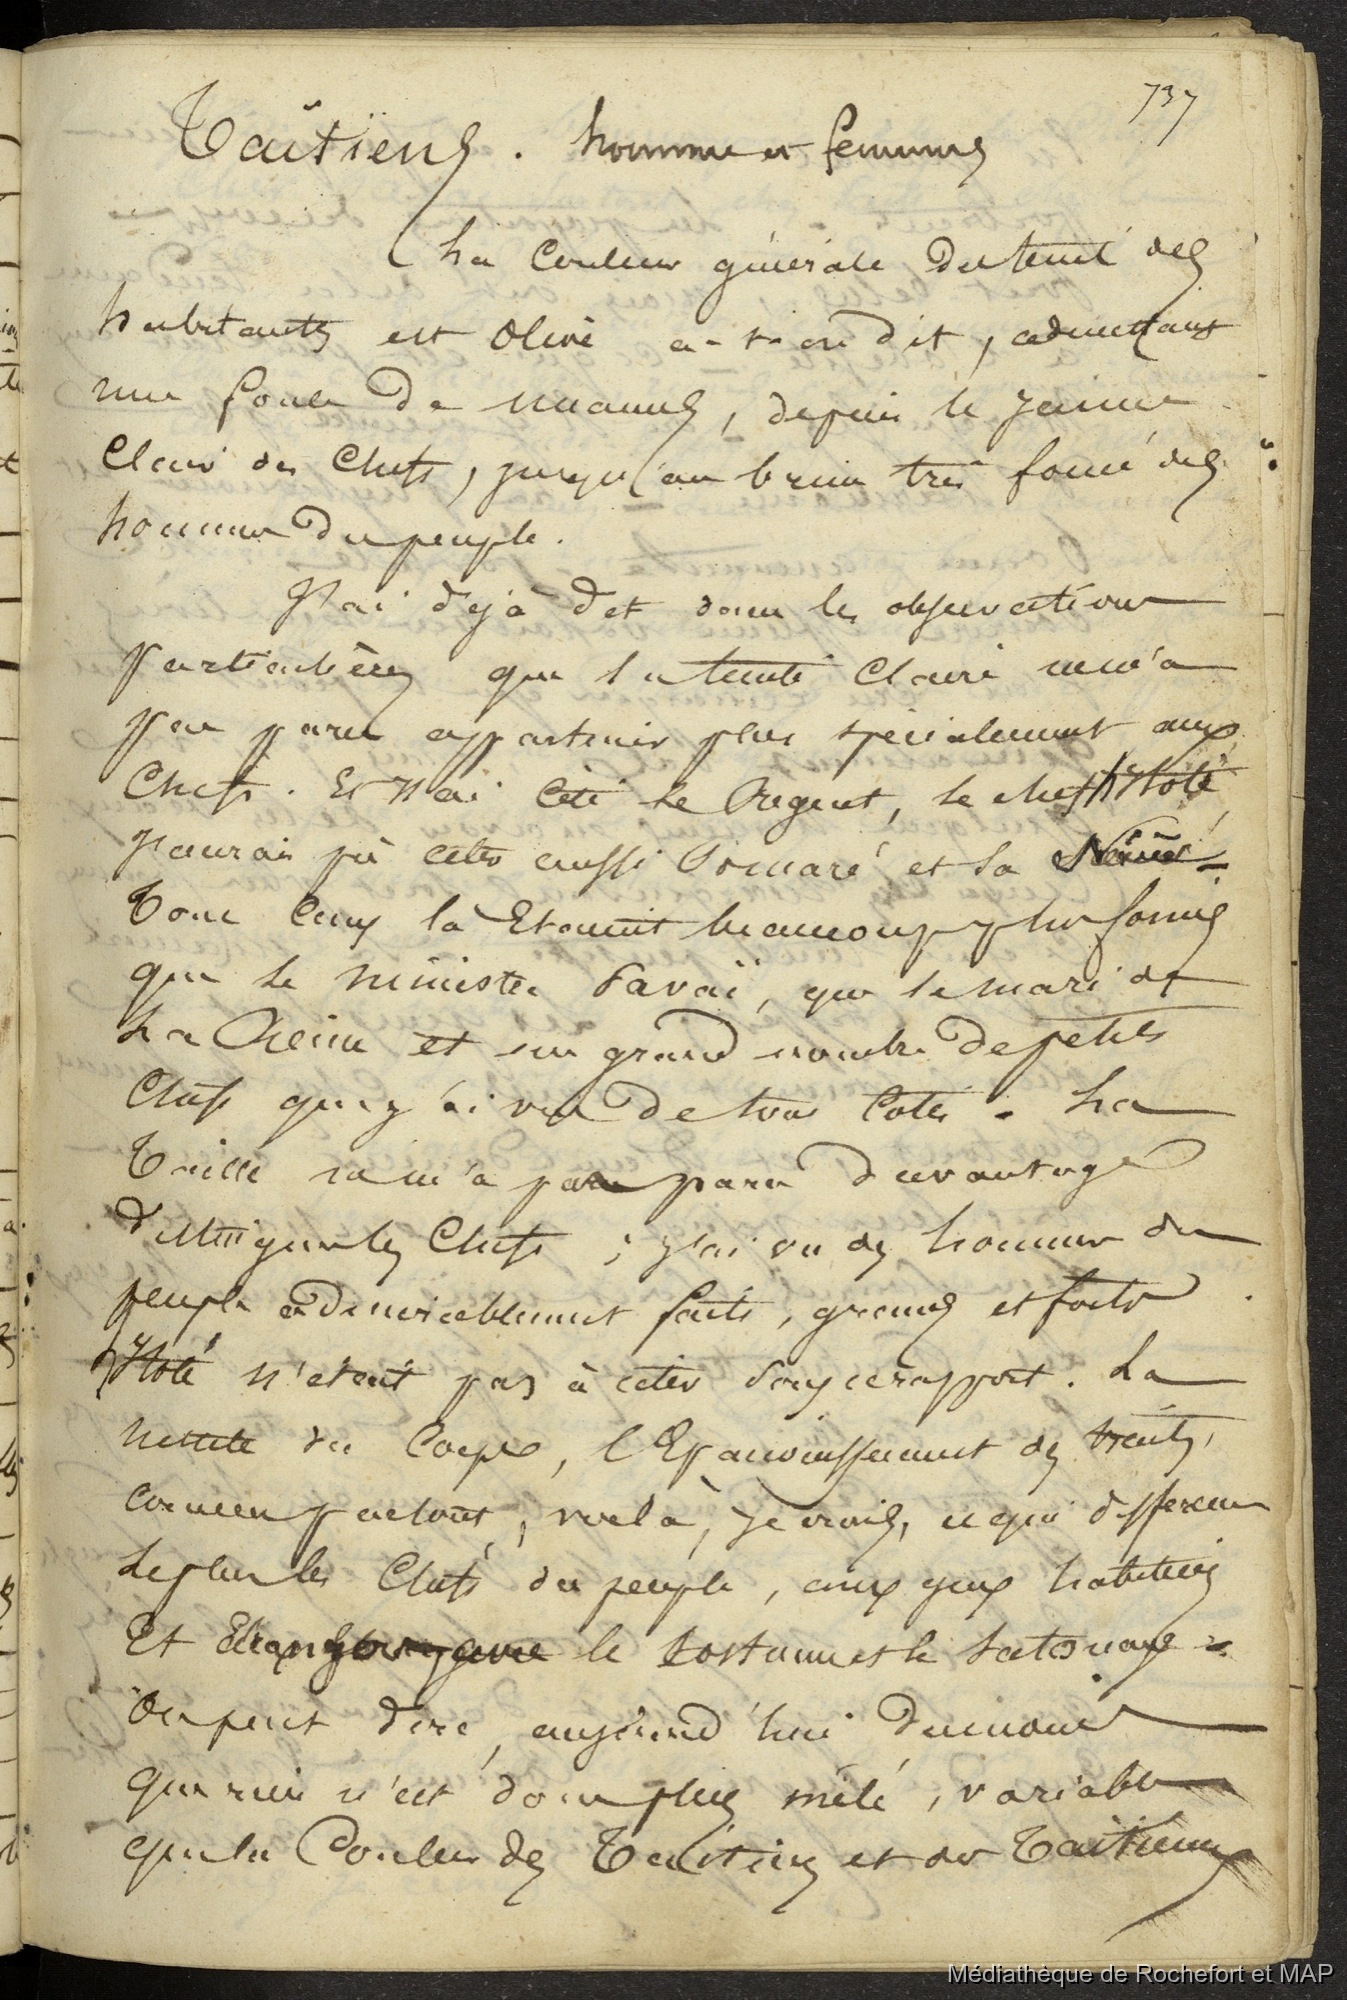 737
Taïtiens. hommes et femmes
La Couleur générale du teint des
habitants est Olive a-t-on dit, admettant
une foule de nuances, depuis le jaune
Clair des Chefs, jusqu'au brun très foncé des
hommes du peuple.
J'ai déjà dit dans les observations
particulières que la teinte Claire ne m'a
pas paru appartenir plus spécialement aux
Chefs. Et si j'ai cité le Régent, le chef
j'aurais pû citer aussi Pomaré et sa
Tous Ceux là Etaient beaucoup plus foncés
que le ministre Tavaï, que le mari de
La Reine et un grand nombre de petits
Chefs que j'ai vu de tous Cotés. La
Taille ne m'a pas paru davantage
distinguer les Chefs ; j'ai vu des hommes du
peuple admirablement faits, grands et forts
n'était pas à citer sous ce rapport. La
netteté du Corps, l'Epanouissement des traits,
comme partout, voilà, je crois, ce qui différencie
le plus les Chefs du peuple, aux yeux habitués
Et le costume et le tatouage =
On peut dire, aujourd'hui du moins
que rien n'est donc plus mêlé, variable
que la Couleur des Taïtiens et des Taïtiennes
Médiathèque de Rochefort et MAP